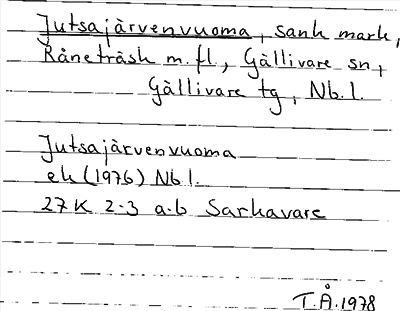 Jutsajärvenvuoma, sank mark,
Råneträsk m. fl., Gällivare sn,
Gällivare tg, Nb. l.
Jutsajärvenvuoma
ek (1976) Nb l.
27 K 2-3 a-b Sarkavare
T.Å. 1978